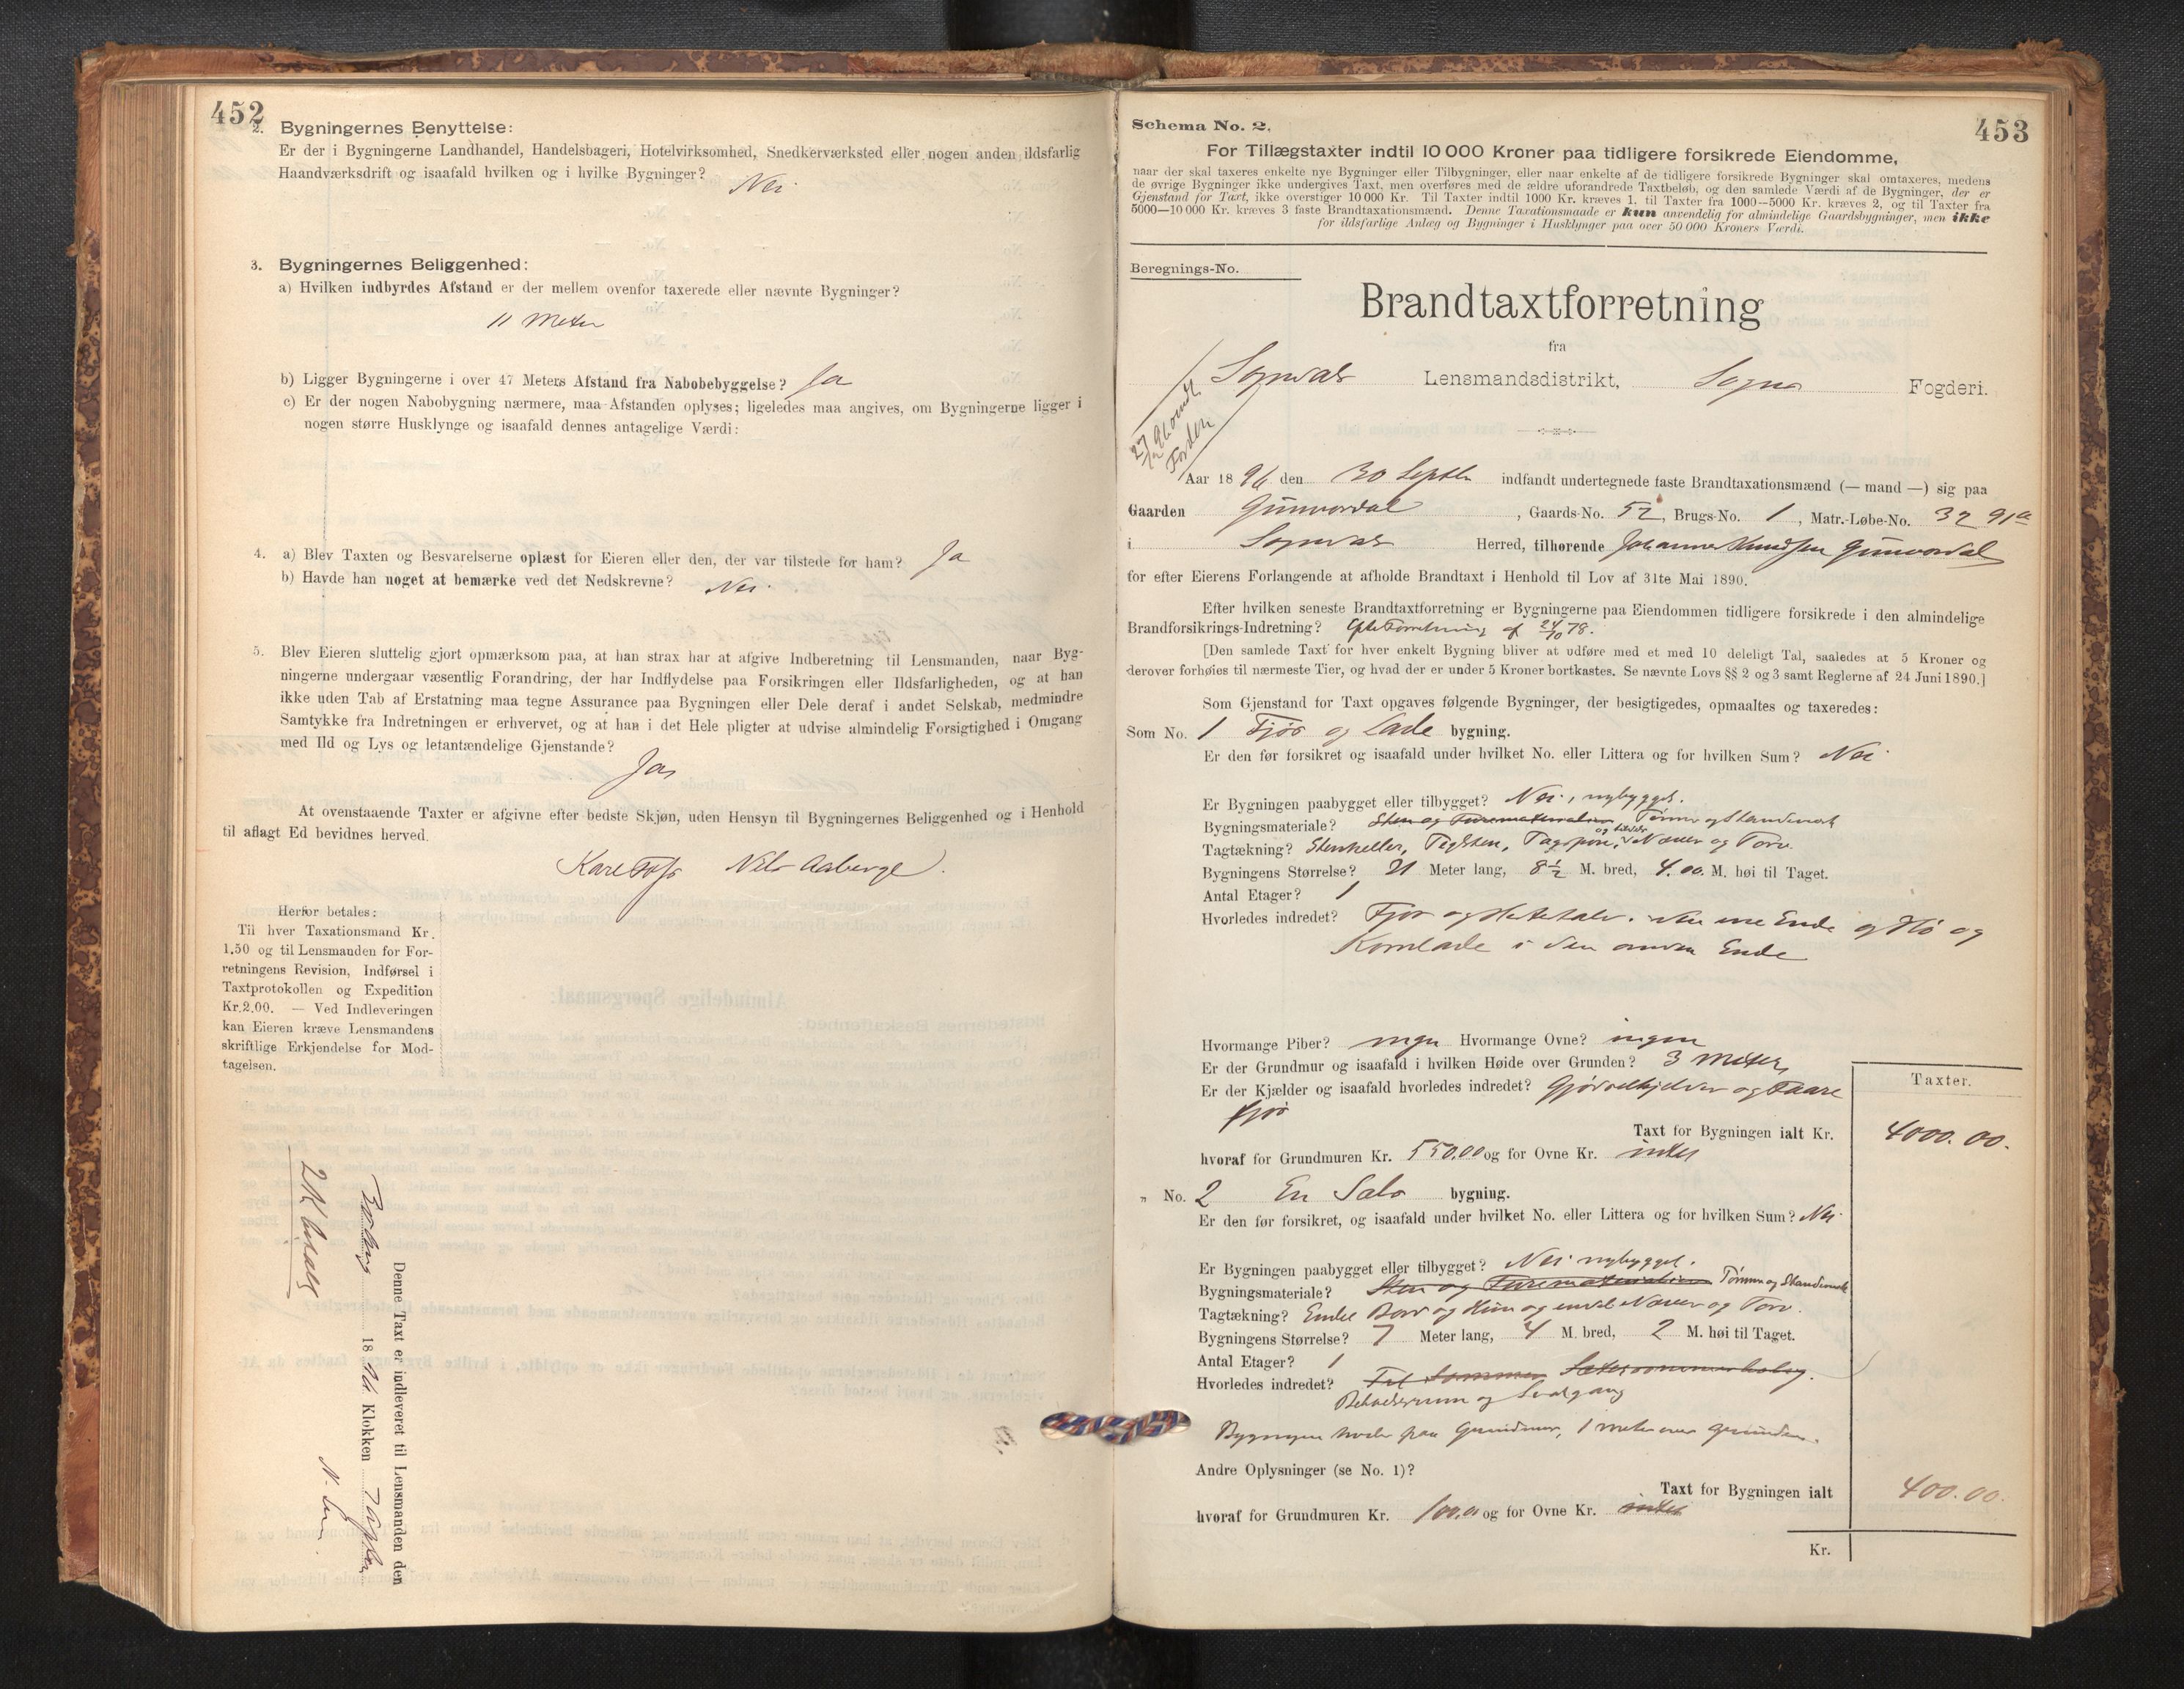 452
2. Bygningernes Benyttelse:
Er der i Bygningerne Landhandel, Handelsbageri, Hotelvirksomhed, Snedkerværksted eller nogen anden ildsfarlig
Haandværksdrift og isaafald hvilken og i hvilke Bygninger? Nei
3. Bygningernes Beliggenhed:
a) Hvilken indbyrdes Afstand er der mellem ovenfor taxerede eller nævnte Bygninger?
11 Meter
b) Ligger Bygningerne i over 47 Meters Afstand fra Nabobebyggelse? Ja
c) Er der nogen Nabobygning nærmere, maa Afstanden oplyses; ligeledes maa angives, om Bygningerne ligger i
nogen større Husklynge og isaafald dennes antagelige Værdi:
4. a) Blev Taxten og Besvarelserne oplæst for Eieren eller den, der var tilstede for ham? Ja
b) Havde han noget at bemærke ved det Nedskrevne? Nei.
5. Blev Eieren sluttelig gjort opmærksom paa, at han strax har at afgive Indberetning til Lensmanden, naar Byg-
ningerne undergaar væsentlig Forandring, der har Indflydelse paa Forsikringen eller Ildsfarligheden, og at han
ikke uden Tab af Erstatning maa tegne Assurance paa Bygningen eller Dele deraf i andet Selskab, medmindre
Samtykke fra Indretningen er erhvervet, og at han i det Hele pligter at udvise almindelig Forsigtighed i Omgang
med Ild og Lys og letantændelige Gjenstande?
Ja
At ovenstaaende Taxter er afgivne efter bedste Skjøn, uden Hensyn til Bygningernes Beliggenhed og i Henhold
til aflagt Ed bevidnes herved.
Nils Aaberge.
Herfor betales:
Til hver Taxationsmand Kr.
1.50 og til Lensmanden for For-
retningens Revision, Indførsel i
Taxtprotokollen og Expedition
Kr. 2.00. — Ved Indleveringen
kan Eieren kræve Lensmandens
skriftlige Erkjendelse for Mod-
tagelsen.
Denne Taxt er indleveret til Lensmanden den
18 96 Klokken 7
2 K betalt
453
Schema No. 2.
For Tillægstaxter indtil 10 000 Kroner paa tidligere forsikrede Eiendomme,
naar der skal taxeres enkelte nye Bygninger eller Tilbygninger, eller naar enkelte af de tidligere forsikrede Bygninger skal omtaxeres, medens
de øvrige Bygninger ikke undergives Taxt, men overføres med de ældre uforandrede Taxtbeløb, og den samlede Værdi af de Bygninger, der er
Gjenstand for Taxt, ikke overstiger 10 000 Kr. Til Taxter indtil 1000 Kr. kræves 1, til Taxter fra 1000—5000 Kr. kræves 2, og til Taxter fra
5000—10 000 Kr. kræves 3 faste Brandtaxationsmænd. Denne Taxationsmaade er kun anvendelig for almindelige Gaardsbygninger, men ikke
for ildsfarlige Anlæg og Bygninger i Husklynger paa over 50 000 Kroners Værdi.
Beregnings-No.
Brandtaxtforretning
fra
Sogndal Lensmandsdistrikt, Sogns Fogderi.
Aar 18 96 den 30 Septbr indfandt undertegnede faste Brandtaxationsmænd (— mand —) sig paa
Gaarden Gunvordal, Gaards-No. 52, Brugs-No. 1, Matr.-Løbe-No. 32 91a
i Sogndal Herred, tilhørende Johannes Knudsen Gunvordal
for efter Eierens Forlangende at afholde Brandtaxt i Henhold til Lov af 31te Mai 1890.
Efter hvilken seneste Brandtaxtforretning er Bygningerne paa Eiendommen tidligere forsikrede i den almindelige
Brandforsikrings-Indretning? Efter Forretning af 24/10 78.
[Den samlede Taxt for hver enkelt Bygning bliver at udføre med et med 10 deleligt Tal, saaledes at 5 Kroner og
derover forhøies til nærmeste Tier, og hvad der er under 5 Kroner bortkastes. Se nævnte Lovs §§ 2 og 3 samt Reglerne af 24 Juni 1890.]
Som Gjenstand for Taxt opgaves følgende Bygninger, der besigtigedes, opmaaltes og taxeredes:
Som No. 1 Fjøs og Lade bygning.
Er den før forsikret og isaafald under hvilket No. eller Littera og for hvilken Sum? Nei
Er Bygningen paabygget eller tilbygget? Nei, nybygget.
Bygningsmateriale? Sten og Furematerialier Tømmer og Standværk
Tagtækning? Stenheller, Teglsten, Tagspon, og Næver og Torv.
Bygningens Størrelse? 21 Meter lang, 8½ M. bred, 4.00 M. høi til Taget.
Antal Etager? 1
Hvorledes indredet? Fjøs og Hestestald i den ene Ende og Hø og
Kornlade i den anden Ende
Hvormange Piber? ingen Hvormange Ovne? ingen
Er der Grundmur og isaafald i hvilken Høide over Grunden? 3 Meter
Er der Kjælder og isaafald hvorledes indredet? Gjødselkjelder og Faare
fjøs
Taxter.
Taxt for Bygningen ialt Kr. 4000.00.
hvoraf for Grundmuren Kr. 550,00 og for Ovne Kr. intet
„ No. 2 En Sels bygning.
Er den før forsikret, og isaafald under hvilket No. eller Littera og for hvilken Sum? Nei
Er Bygningen paabygget eller tilbygget? Nei nybygget.
Bygningsmateriale? Sten og Furematerialier Tømmer og Standværk
Tagtækning? Næver og Torv.
Bygningens Størrelse? 7 Meter lang, 4 M. bred, 2 M. høi til Taget.
Antal Etager? 1
Hvorledes indredet?
Beboelsesrum og Svalgang
Bygningen hviler paa Grundmur, 1 meter over Grunden.
Andre Oplysninger (se No. 1)?
Taxt for Bygningen ialt 400.00.
hvoraf for Grundmuren Kr. 100.00 og for Ovne Kr. intet
Kr.